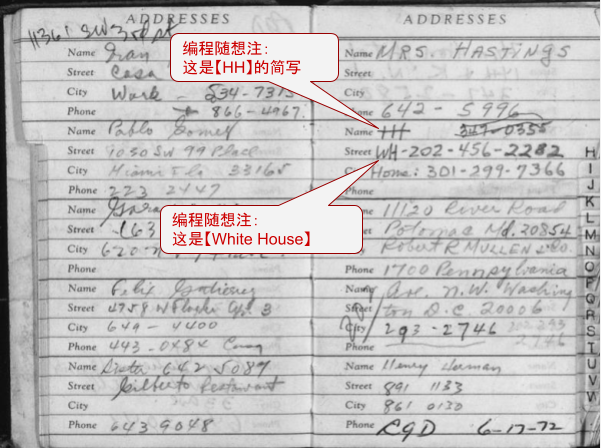 ADDRESSES
1136 SW 3rd
Name
Street Casa
City Work - 534-731
Phone 866-4967
Name Pablo Gomez
Street 1030 SW 99 Place
City Miami Fla 33165
Phone 223 2447
Name
Street 163
City
Phone
Name Felix Gutierrez
Street 4758 W Flagler 3
City 649 - 4400
Phone 443-0484
Name 642 5089
Street Gilberto Restaurant
City
Phone 643 9048
编程随想注:
这是【HH】的简写
编程随想注:
这是【White House】
ADDRESSES
Name MRS. HASTINGS
Street
City
Phone 642 - 5996
Name HH 347-0355
Street WH-202-456-2282
City Home: 301-299-7366
Phone
11120 River Road
Street Potomac Md. 20854
City Robert R MULLEN & Co.
Phone 1700 Pennsylvania
Name Ave. N.W. Washing
Street ton D.C. 20006
City 293-2746 202 293
Phone 2746
Name Henry
Street 891 1133
City 861 0130
Phone 6-17-72
H
I
J
K
L
M
N
O
P
Q
R
S
T
U
V
W